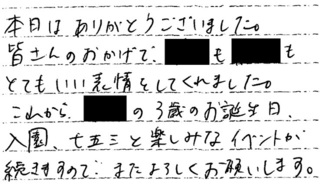 本日はありがとうございました。
皆さんのおかげで、も も
とてもいい表情をしてくれました。
これから の3歳のお誕生日、
入園、七五三と楽しみなイベントが
続きますので、またよろしくお願いします。